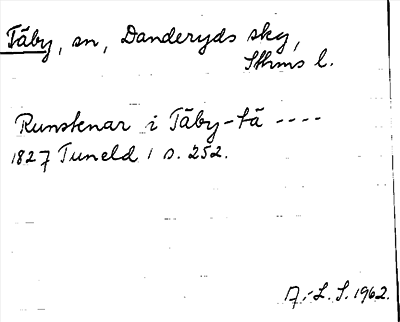 Täby, sn, Danderyds skg,
Sthms l.
Runstenar i Täby-tä ----
1827 Tuneld 1 s. 252.
A.-L. S. 1962.